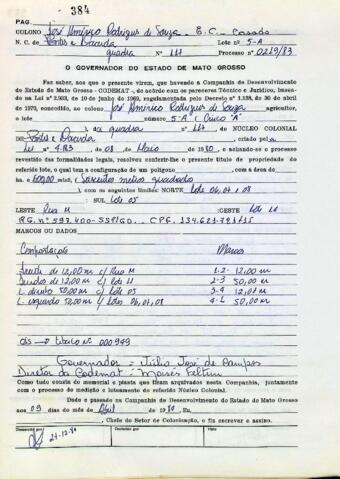 384
PAG.
COLONO José Américo Rodrigues de Souza E. C. Casado
N. C. de Pontes e Lacerda Lote nº 5-A
quadra Nº 44 Processo nº 0219/83
O GOVERNADOR DO ESTADO DE MATO GROSSO
Faz saber, aos que o presente virem, que havendo a Companhia de Desenvolvimento
do Estado de Mato Grosso - CODEMAT -, de acordo com os pareceres Técnico e Jurídico, basea-
do na Lei nº 2.903, de 10 de junho de 1969, regulamentada pelo Decreto nº 1.138, de 30 de abril
de 1970, concedido, ao colono José Américo Rodrigues de Souza agricultor,
o lote número 5-A (Cinco "A")
da quadra nº 44 DE NÚCLEO COLONIAL
de Pontes e Lacerda criado pela
Lei nº 4.123 de 08 de Maio de 1980 e achando-se o processo
revestido das formalidades legais, resolveu conferir-lhe o presente título de propriedade
do referido lote, o qual tem a configuração de um polígono de
ha. e 600,00 mts2, (Seiscentos metros quadrados
), com os seguintes limites: NORTE lote 06, 07 e 08
SUL lote 05
LESTE Rua M OESTE lote 11
MARCOS OU DADOS
Confrontação Marcos
frente de 12,00m c/ Rua M 1-2 12,00m
fundos de 12,00m c/ lote 11 2-3 50,00m
L. direito 50,00m c/ lote 05 3-4 12,00m
L. esquerdo 50,00m c/ lotes 06, 07, 08 4-1 50,00m
Obs → título nº 000949
Governador = Júlio José de Campos
Diretor da Codemat = Moisés Feltrin
Como tudo consta do memorial e planta que ficam arquivados nesta Companhia, juntamente
com o processo de medição e loteamento do referido Núcleo Colonial.
Dado e passado na Companhia de Desenvolvimento do Estado de Mato Grosso
aos 09 dias do mês de Abril de 1984 Eu,
, Chefe do Setor de Colonização, o fiz escrever e assino.